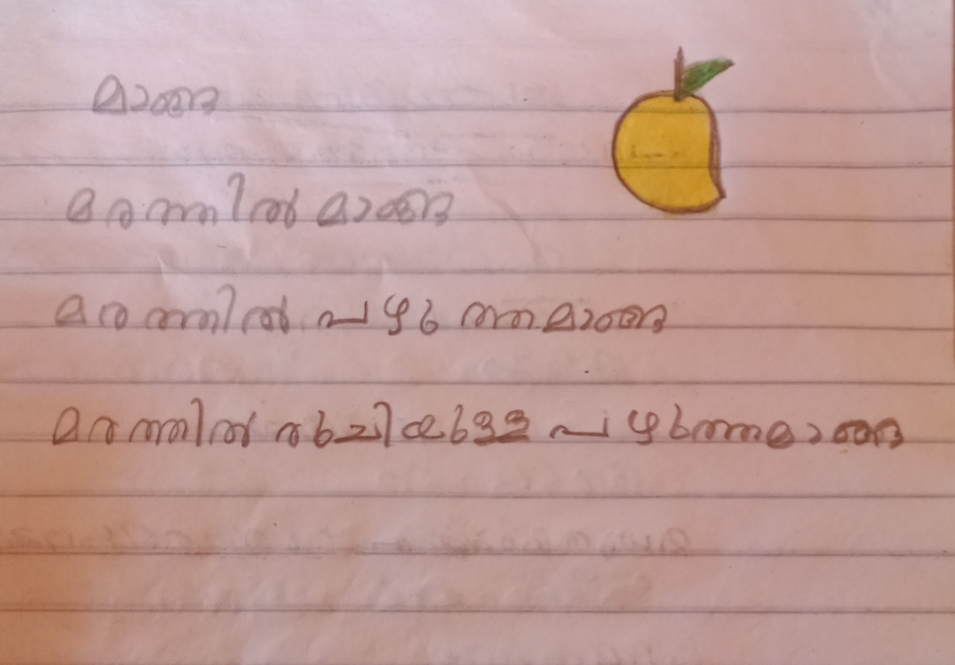 മാങ്ങ
മരത്തിൽ മാങ്ങ
മരത്തിൽ പഴുത്തമാങ്ങ
മരത്തിൽ രുചിയുള്ള പഴുത്തമാങ്ങ